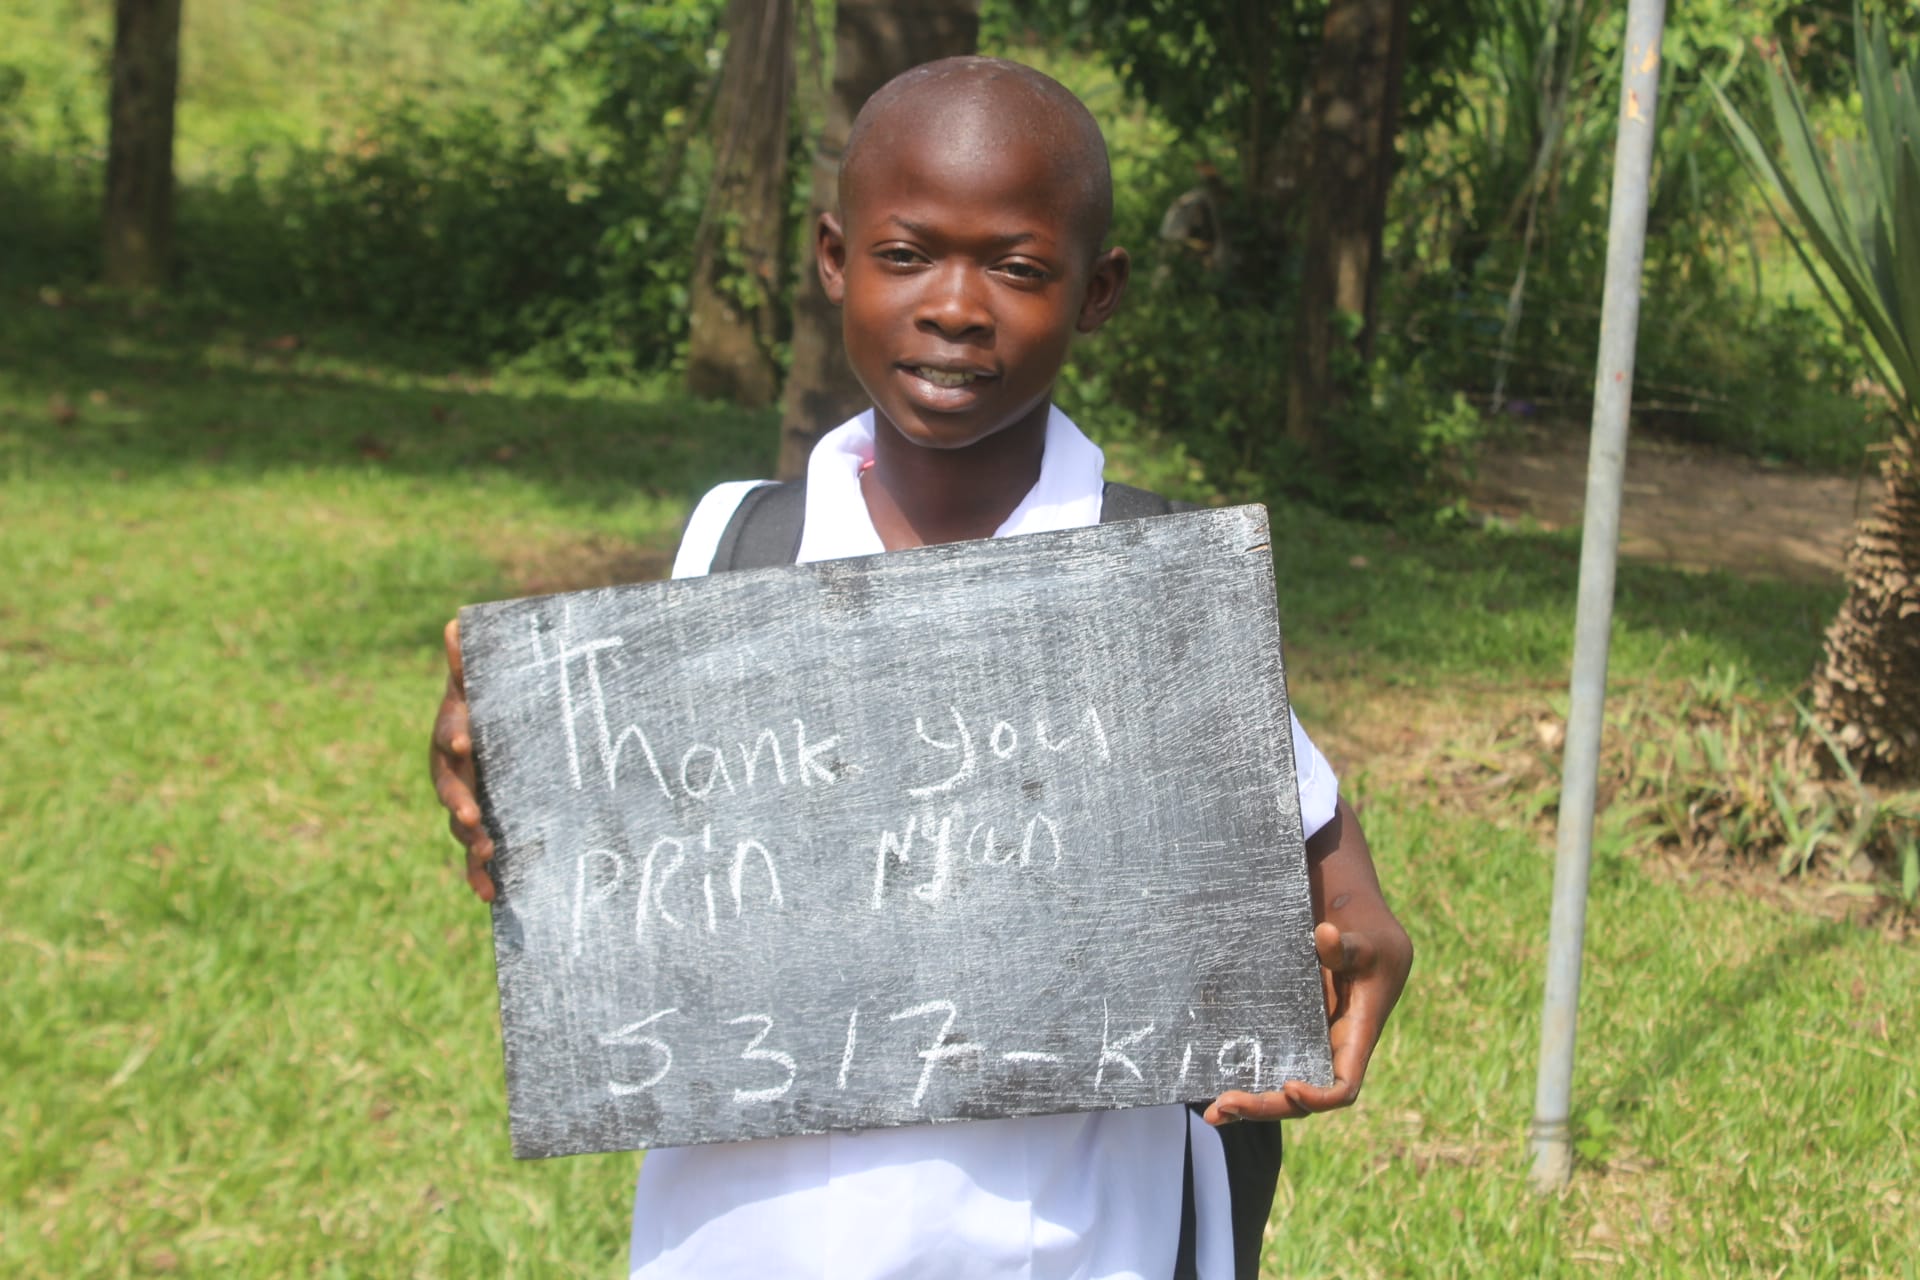 Thank you
PRin Nyan
5317-Kia